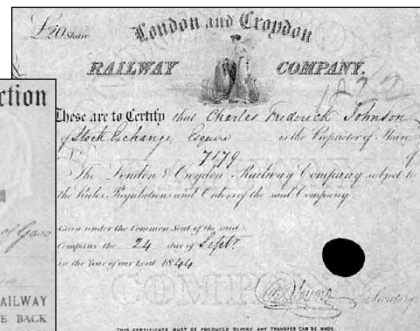 £20 Share
London and Croydon
RAILWAY COMPANY.
These are to Certify that Charles Frederick Johnson
of Stock Exchange, Esquire is the Proprietor of Share
7179
The London & Croydon Railway Company subject to
the Rules Regulations and Orders of the said Company
Given under the Common Seal of the said
Company the 24 day of Septr.
in the Year of our Lord 1844
THIS CERTIFICATE MUST BE PRODUCED BEFORE ANY TRANSFER CAN BE MADE.
ction
AILWAY
E BACK